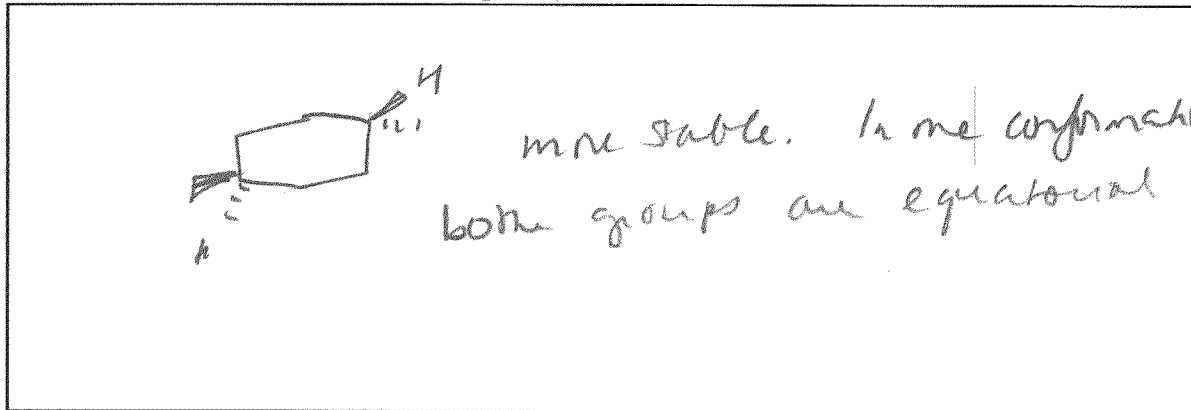 H
more stable. In one conformati
both groups are equatorial
H